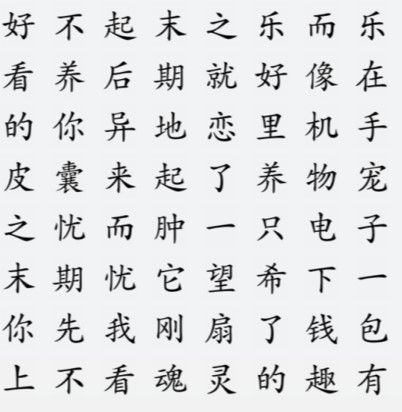 好不起末之乐而乐
看养后期就好像在
的你异地恋里机手
皮囊来起了养物宠
之忧而肿一只电子
末期忧它望希下一
你先我刚扇了钱包
上不看魂灵的趣有